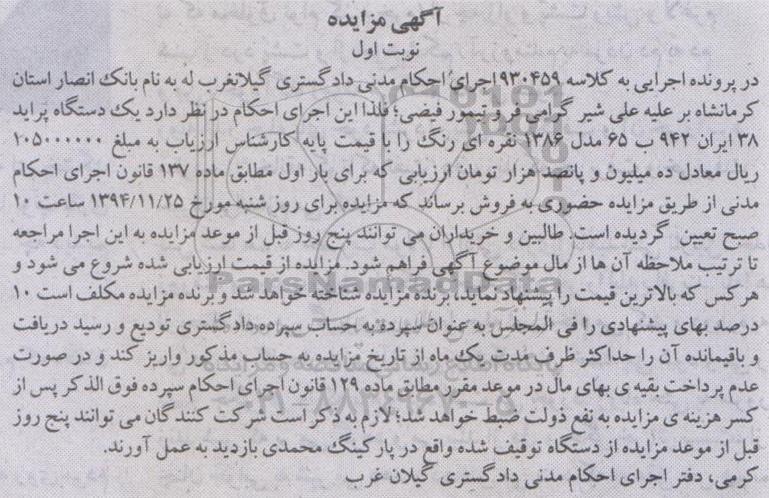 آگهی مزایده
نوبت اول
در پرونده اجرایی به کلاسه ۹۳۰۴۵۹ اجرای احکام مدنی دادگستری گیلانغرب له به نام بانک انصار استان
کرمانشاه بر علیه علی شیر گرامی فر و تیمور فیضی؛ فلذا این اجرای احکام در نظر دارد یک دستگاه پراید
۳۸ ایران ۹۴۲ ب ۶۵ مدل ۱۳۸۶ نقره ای رنگ را با قیمت پایه کارشناس ارزیاب به مبلغ ۱۰۵۰۰۰۰۰۰
ریال معادل ده میلیون و پانصد هزار تومان ارزیابی که برای بار اول مطابق ماده ۱۳۷ قانون اجرای احکام
مدنی از طریق مزایده حضوری به فروش برساند که مزایده برای روز شنبه مورخ ۱۳۹۴/۱۱/۲۵ ساعت ۱۰
صبح تعیین گردیده است. طالبین و خریداران می توانند پنج روز قبل از موعد مزایده به این اجرا مراجعه
تا ترتیب ملاحظه آن ها از مال موضوع آگهی فراهم شود. مزایده از قیمت ارزیابی شده شروع می شود و
هر کس که بالاترین قیمت را پیشنهاد نماید، برنده مزایده شناخته خواهد شد و برنده مزایده مکلف است ۱۰
درصد بهای پیشنهادی را فی المجلس به عنوان سپرده به حساب سپرده دادگستری تودیع و رسید دریافت
و باقیمانده آن را حداکثر ظرف مدت یک ماه از تاریخ مزایده به حساب مذکور واریز کند و در صورت
عدم پرداخت بقیه ی بهای مال در موعد مقرر مطابق ماده ۱۲۹ قانون اجرای احکام سپرده فوق الذکر پس از
کسر هزینه ی مزایده به نفع دولت ضبط خواهد شد؛ لازم به ذکر است شرکت کنندگان می توانند پنج روز
قبل از موعد مزایده از دستگاه توقیف شده واقع در پارکینگ محمدی بازدید به عمل آورند.
کرمی، دفتر اجرای احکام مدنی دادگستری گیلان غرب
ParsNamadData